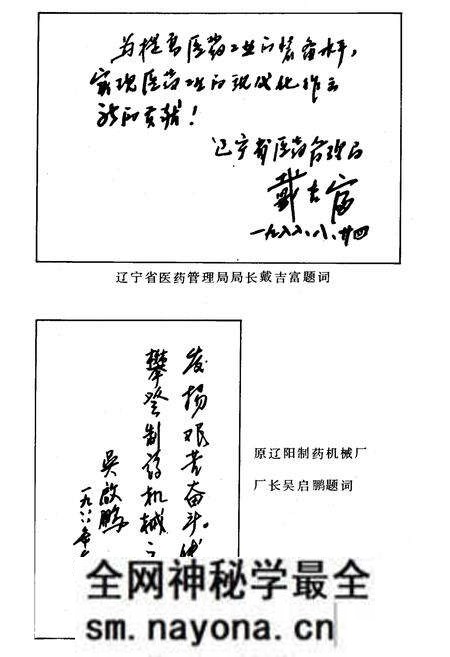 为提高医药工业的装备水平，
实现医药工业的现代化作出
新的贡献！
辽宁省医药管理局
戴吉富
一九八八、八、廿四
辽宁省医药管理局局长戴吉富题词
发扬艰苦奋斗。
攀登制药机械
吴启鹏
一九八八年
原辽阳制药机械厂
厂长吴启鹏题词
全网神秘学最全
sm.nayona.cn